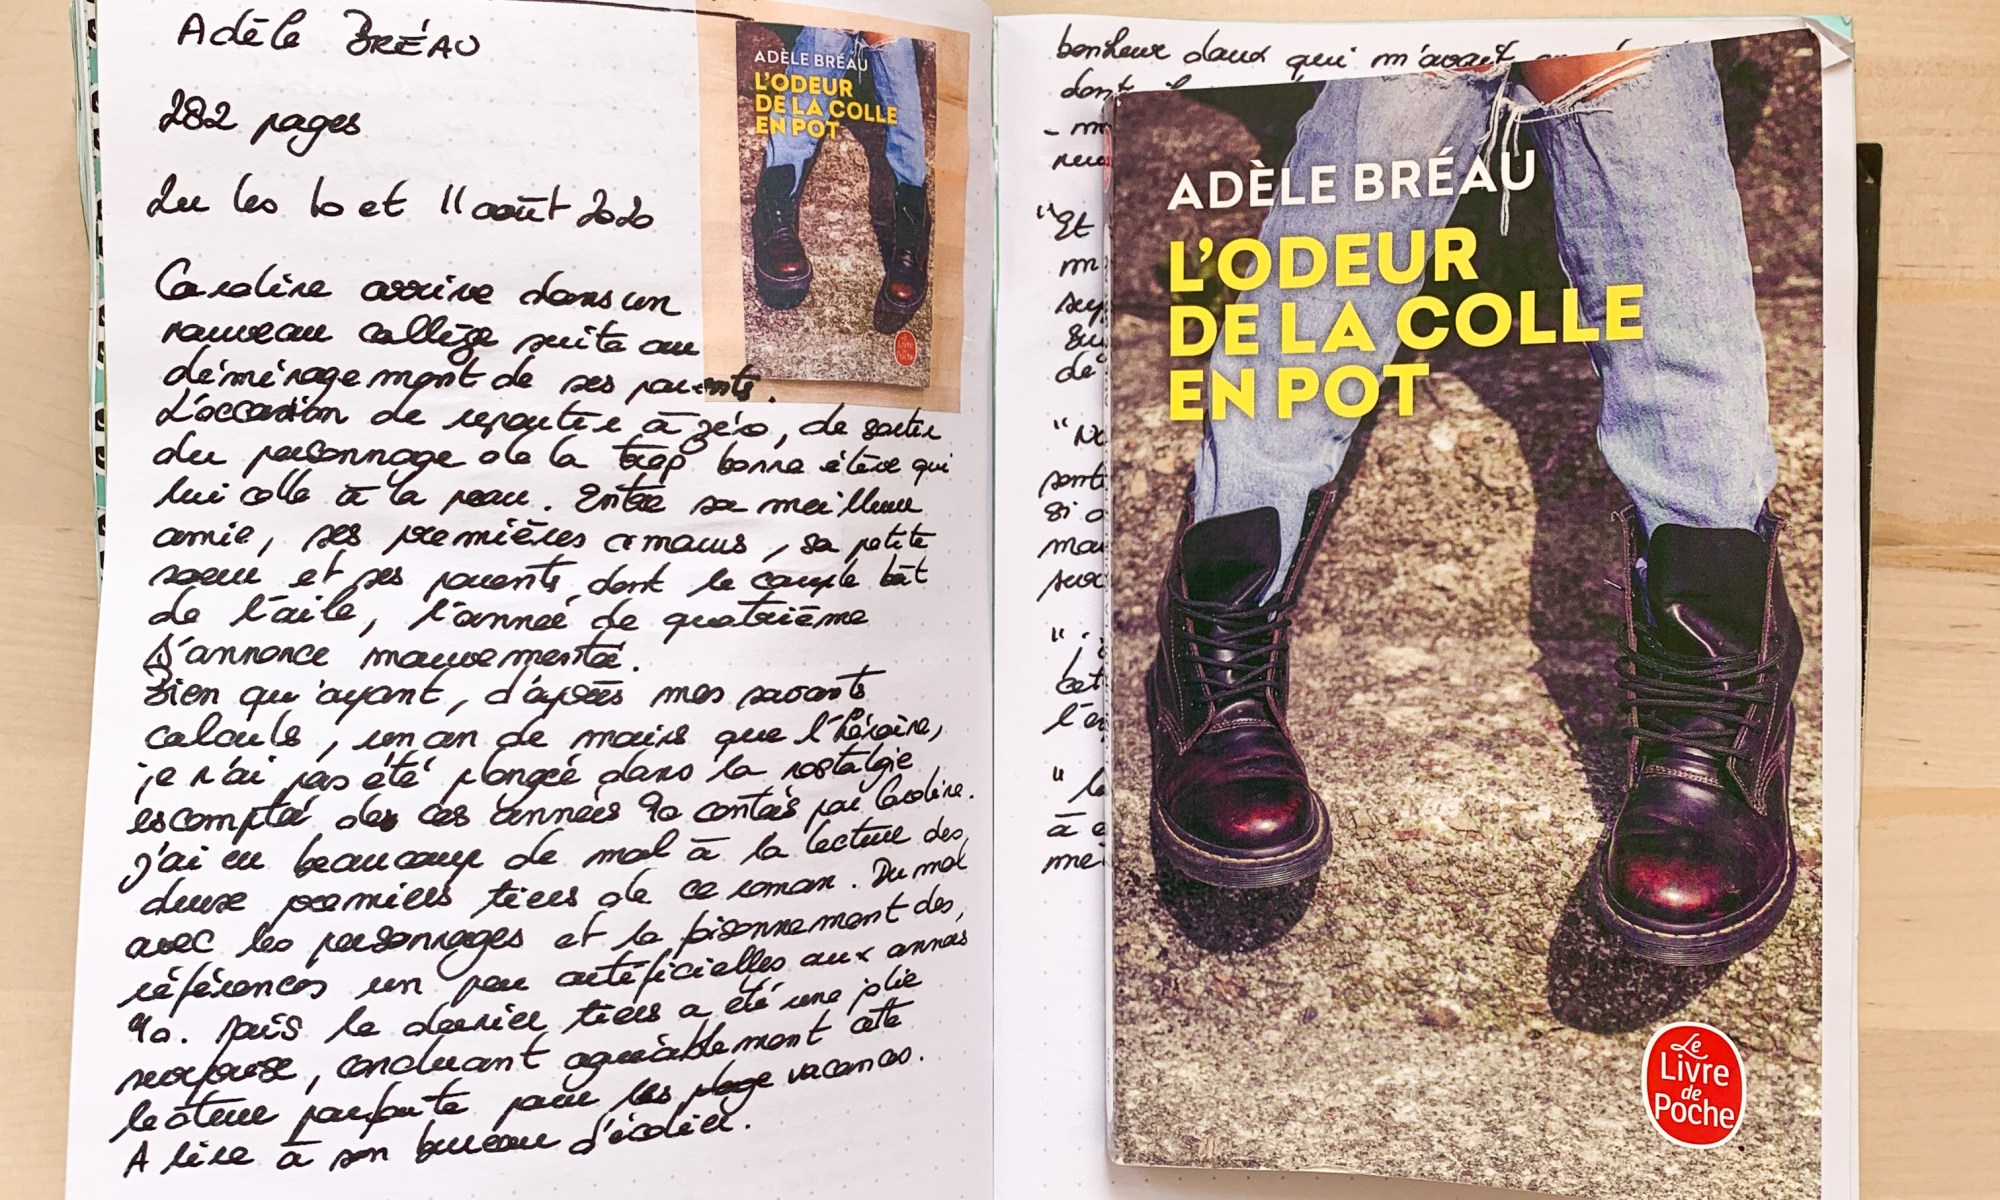 Adèle BRÉAU
282 pages
Lu les 10 et 11 août 2020
Caroline arrive dans un
nouveau collège suite au
déménagement de ses parents.
L'occasion de repartir à zéro, de sortir
du personnage de la trop bonne élève qui
lui colle à la peau. Entre sa meilleure
amie, ses premières amours, sa petite
soeur et ses parents dont le couple bat
de l'aile, l'année de quatrième
s'annonce mouvementée.
Bien qu'ayant, d'après mes savants
calculs, un an de moins que l'héroïne,
je n'ai pas été plongée dans la nostalgie
escomptée des ces années 90 contées par Caroline.
J'ai eu beaucoup de mal à la lecture des
deux premiers tiers de ce roman. Du mal
avec les personnages et le foisonnement des
références un peu artificielles aux années
90. Mais le dernier tiers a été une jolie
surprise, concluant agréablement cette
lecture parfaite pour les plage vacances.
A lire à son bureau d'écolier.
ADÈLE BRÉAU
L'ODEUR
DE LA COLLE
EN POT
Le Livre de Poche
bonheur doux qui m'avait
dont
"Et
de
si
à
ADÈLE BRÉAU
L'ODEUR
DE LA COLLE
EN POT
Le
Livre
de
Poche